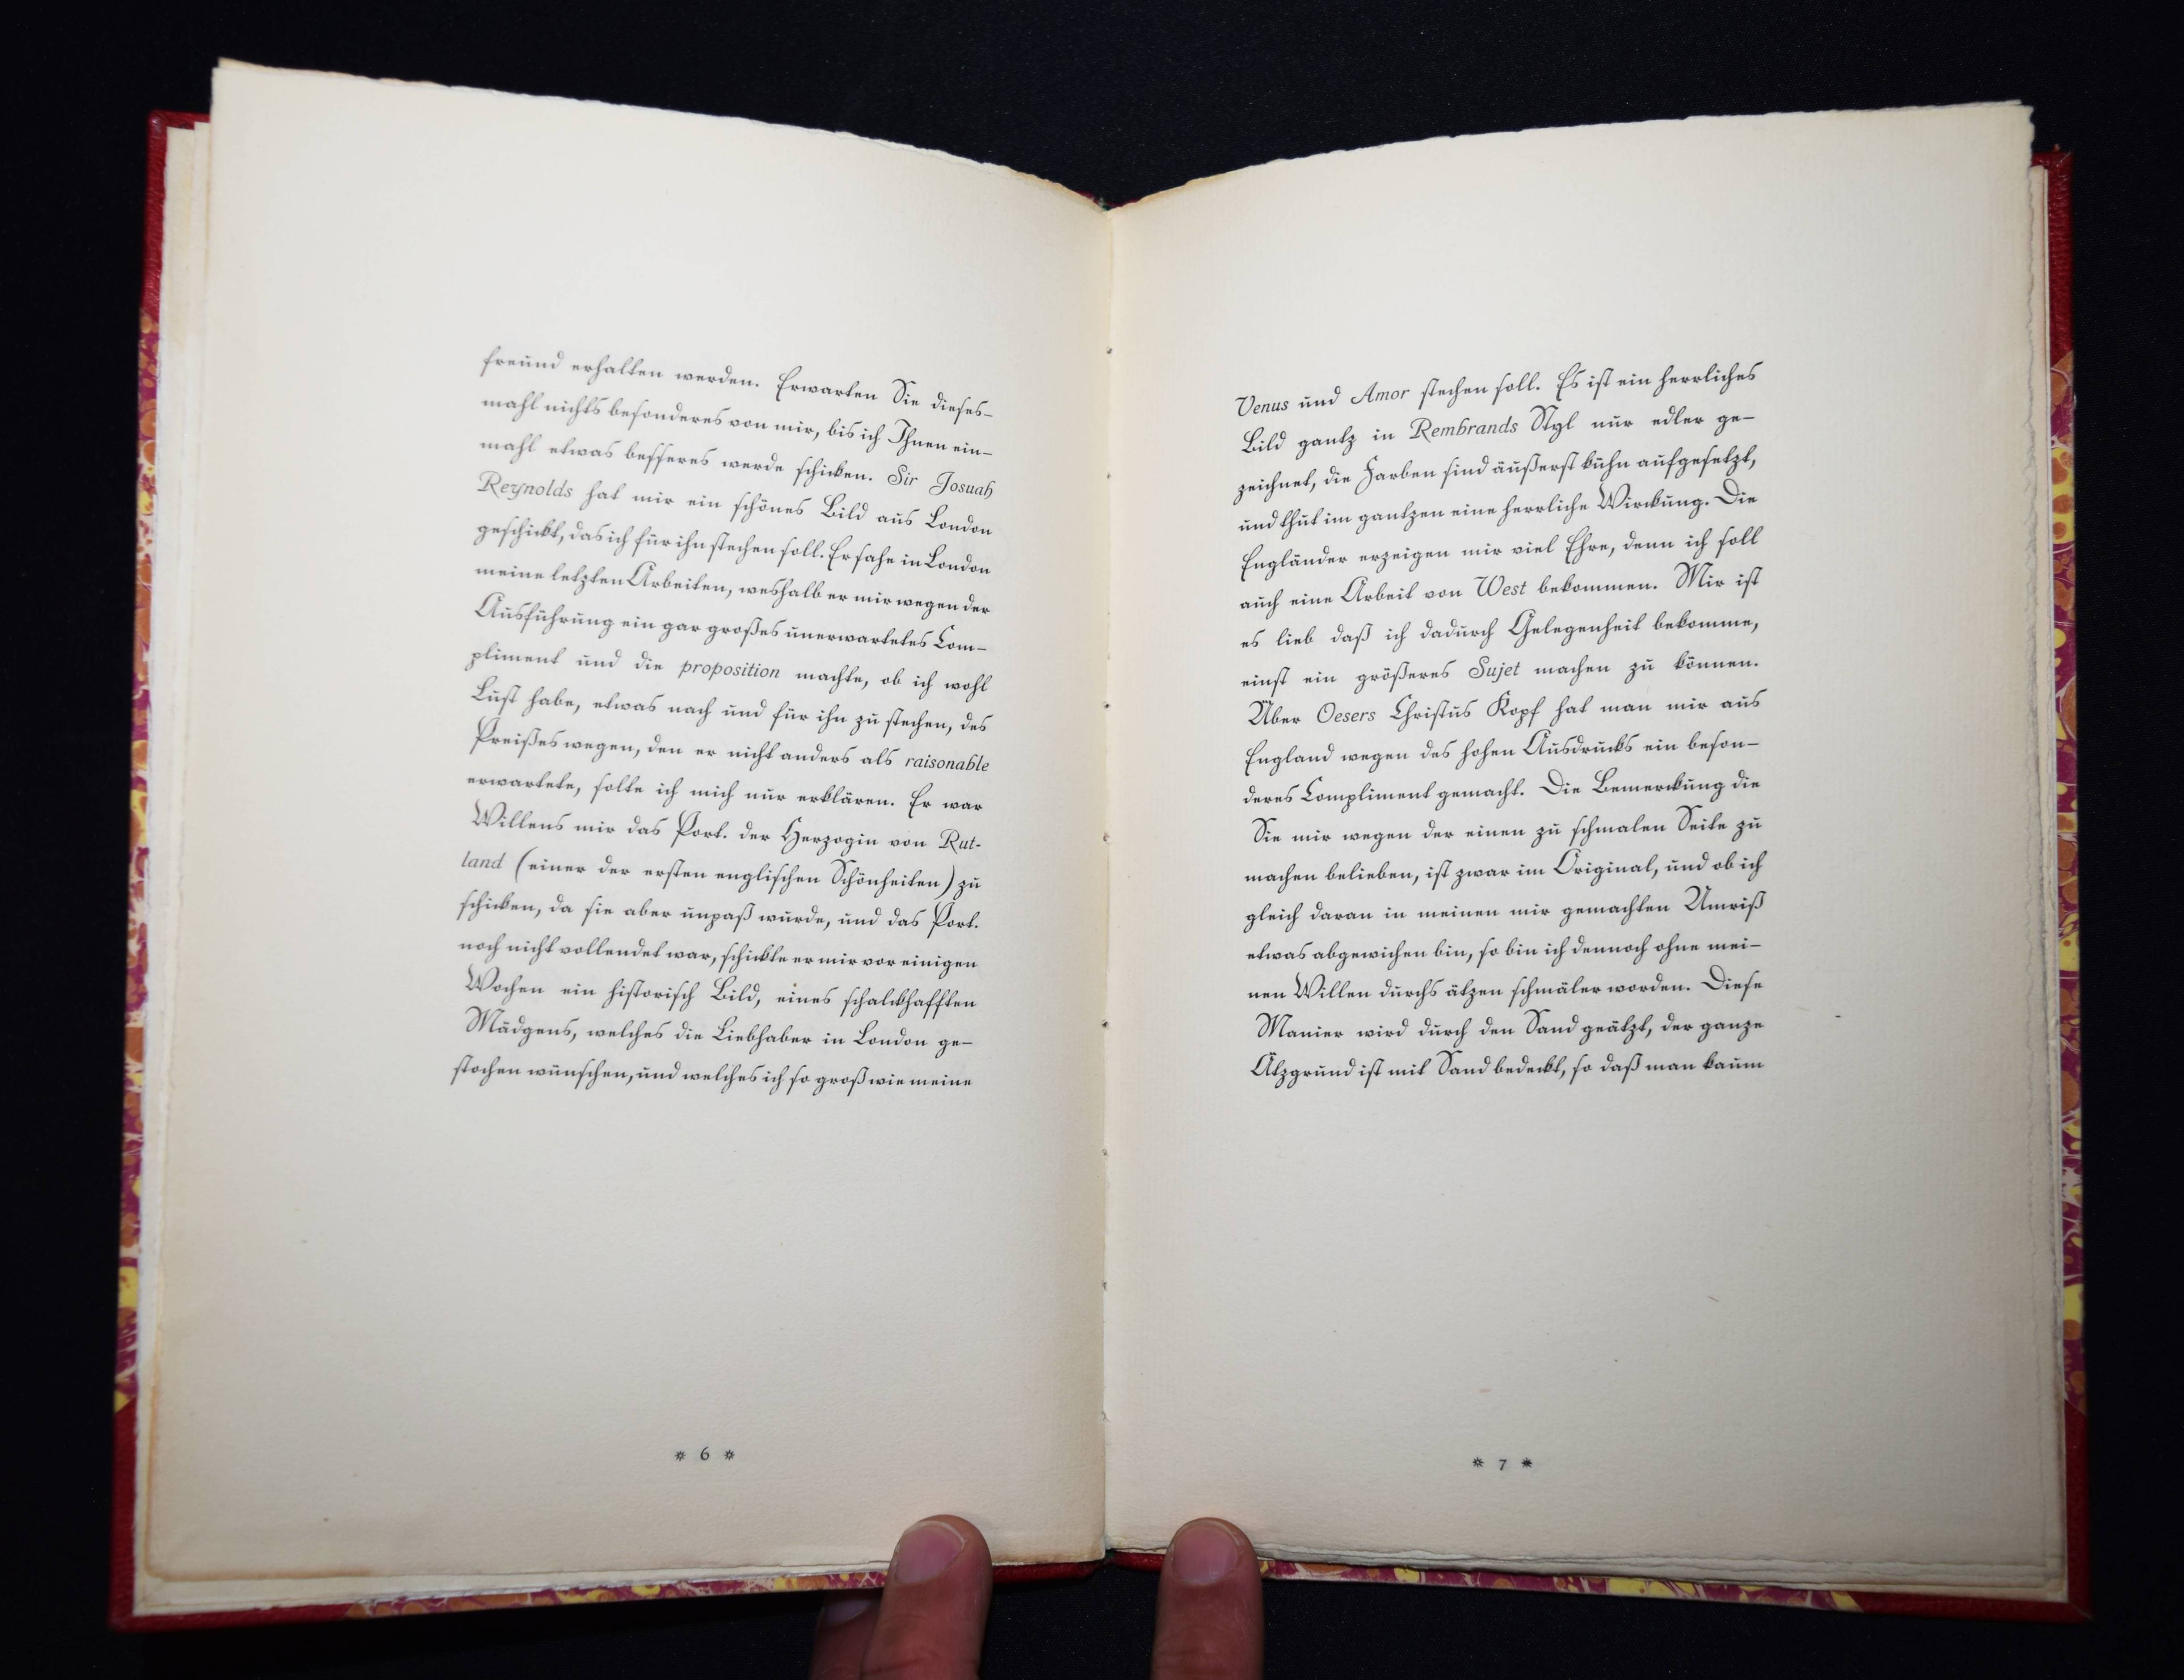 freund erhalten werden. Erwarten Sie dieses-
mahl nichts besonderes von mir, bis ich Ihnen ein-
mahl etwas besseres werde schicken. Sir Josuah
Reynolds hat mir ein schönes Bild aus London
geschickt, das ich für ihn stechen soll. Er sahe in London
meine letzten Arbeiten, weshalb er mir wegen der
Ausführung ein gar großes unerwartetes Com-
pliment und die proposition machte, ob ich wohl
Lust habe, etwas nach und für ihn zu stechen, des
Preißes wegen, den er nicht anders als raisonable
erwartete, solte ich mich nur erklären. Er war
Willens mir das Port. der Herzogin von Rut-
land (einer der ersten englischen Schönheiten) zu
schicken, da sie aber unpaß wurde, und das Port.
noch nicht vollendet war, schickte er mir vor einigen
Wochen ein historisch Bild, eines schalckhafften
Mädgens, welches die Liebhaber in London ge-
stochen wünschen, und welches ich so groß wie meine
* 6 *
Venus und Amor stechen soll. Es ist ein herrliches
Bild gantz in Rembrands Styl nur edler ge-
zeichnet, die Farben sind äußerst kühn aufgesetzt,
und thut im gantzen eine herrliche Wirckung. Die
Engländer erzeigen mir viel Ehre, denn ich soll
auch eine Arbeit von West bekommen. Mir ist
es lieb daß ich dadurch Gelegenheit bekomme,
einst ein größeres Sujet machen zu können.
Über Oesers Christus Kopf hat man mir aus
England wegen des hohen Ausdrucks ein beson-
deres Compliment gemacht. Die Bemerckung die
Sie mir wegen der einen zu schmalen Seite zu
machen belieben, ist zwar im Original, und ob ich
gleich daran in meinen mir gemachten Umriß
etwas abgewichen bin, so bin ich dennoch ohne mei-
nen Willen durchs ätzen schmäler worden. Diese
Manier wird durch den Sand geätzt, der ganze
Ätzgrund ist mit Sand bedeckt, so daß man kaum
* 7 *